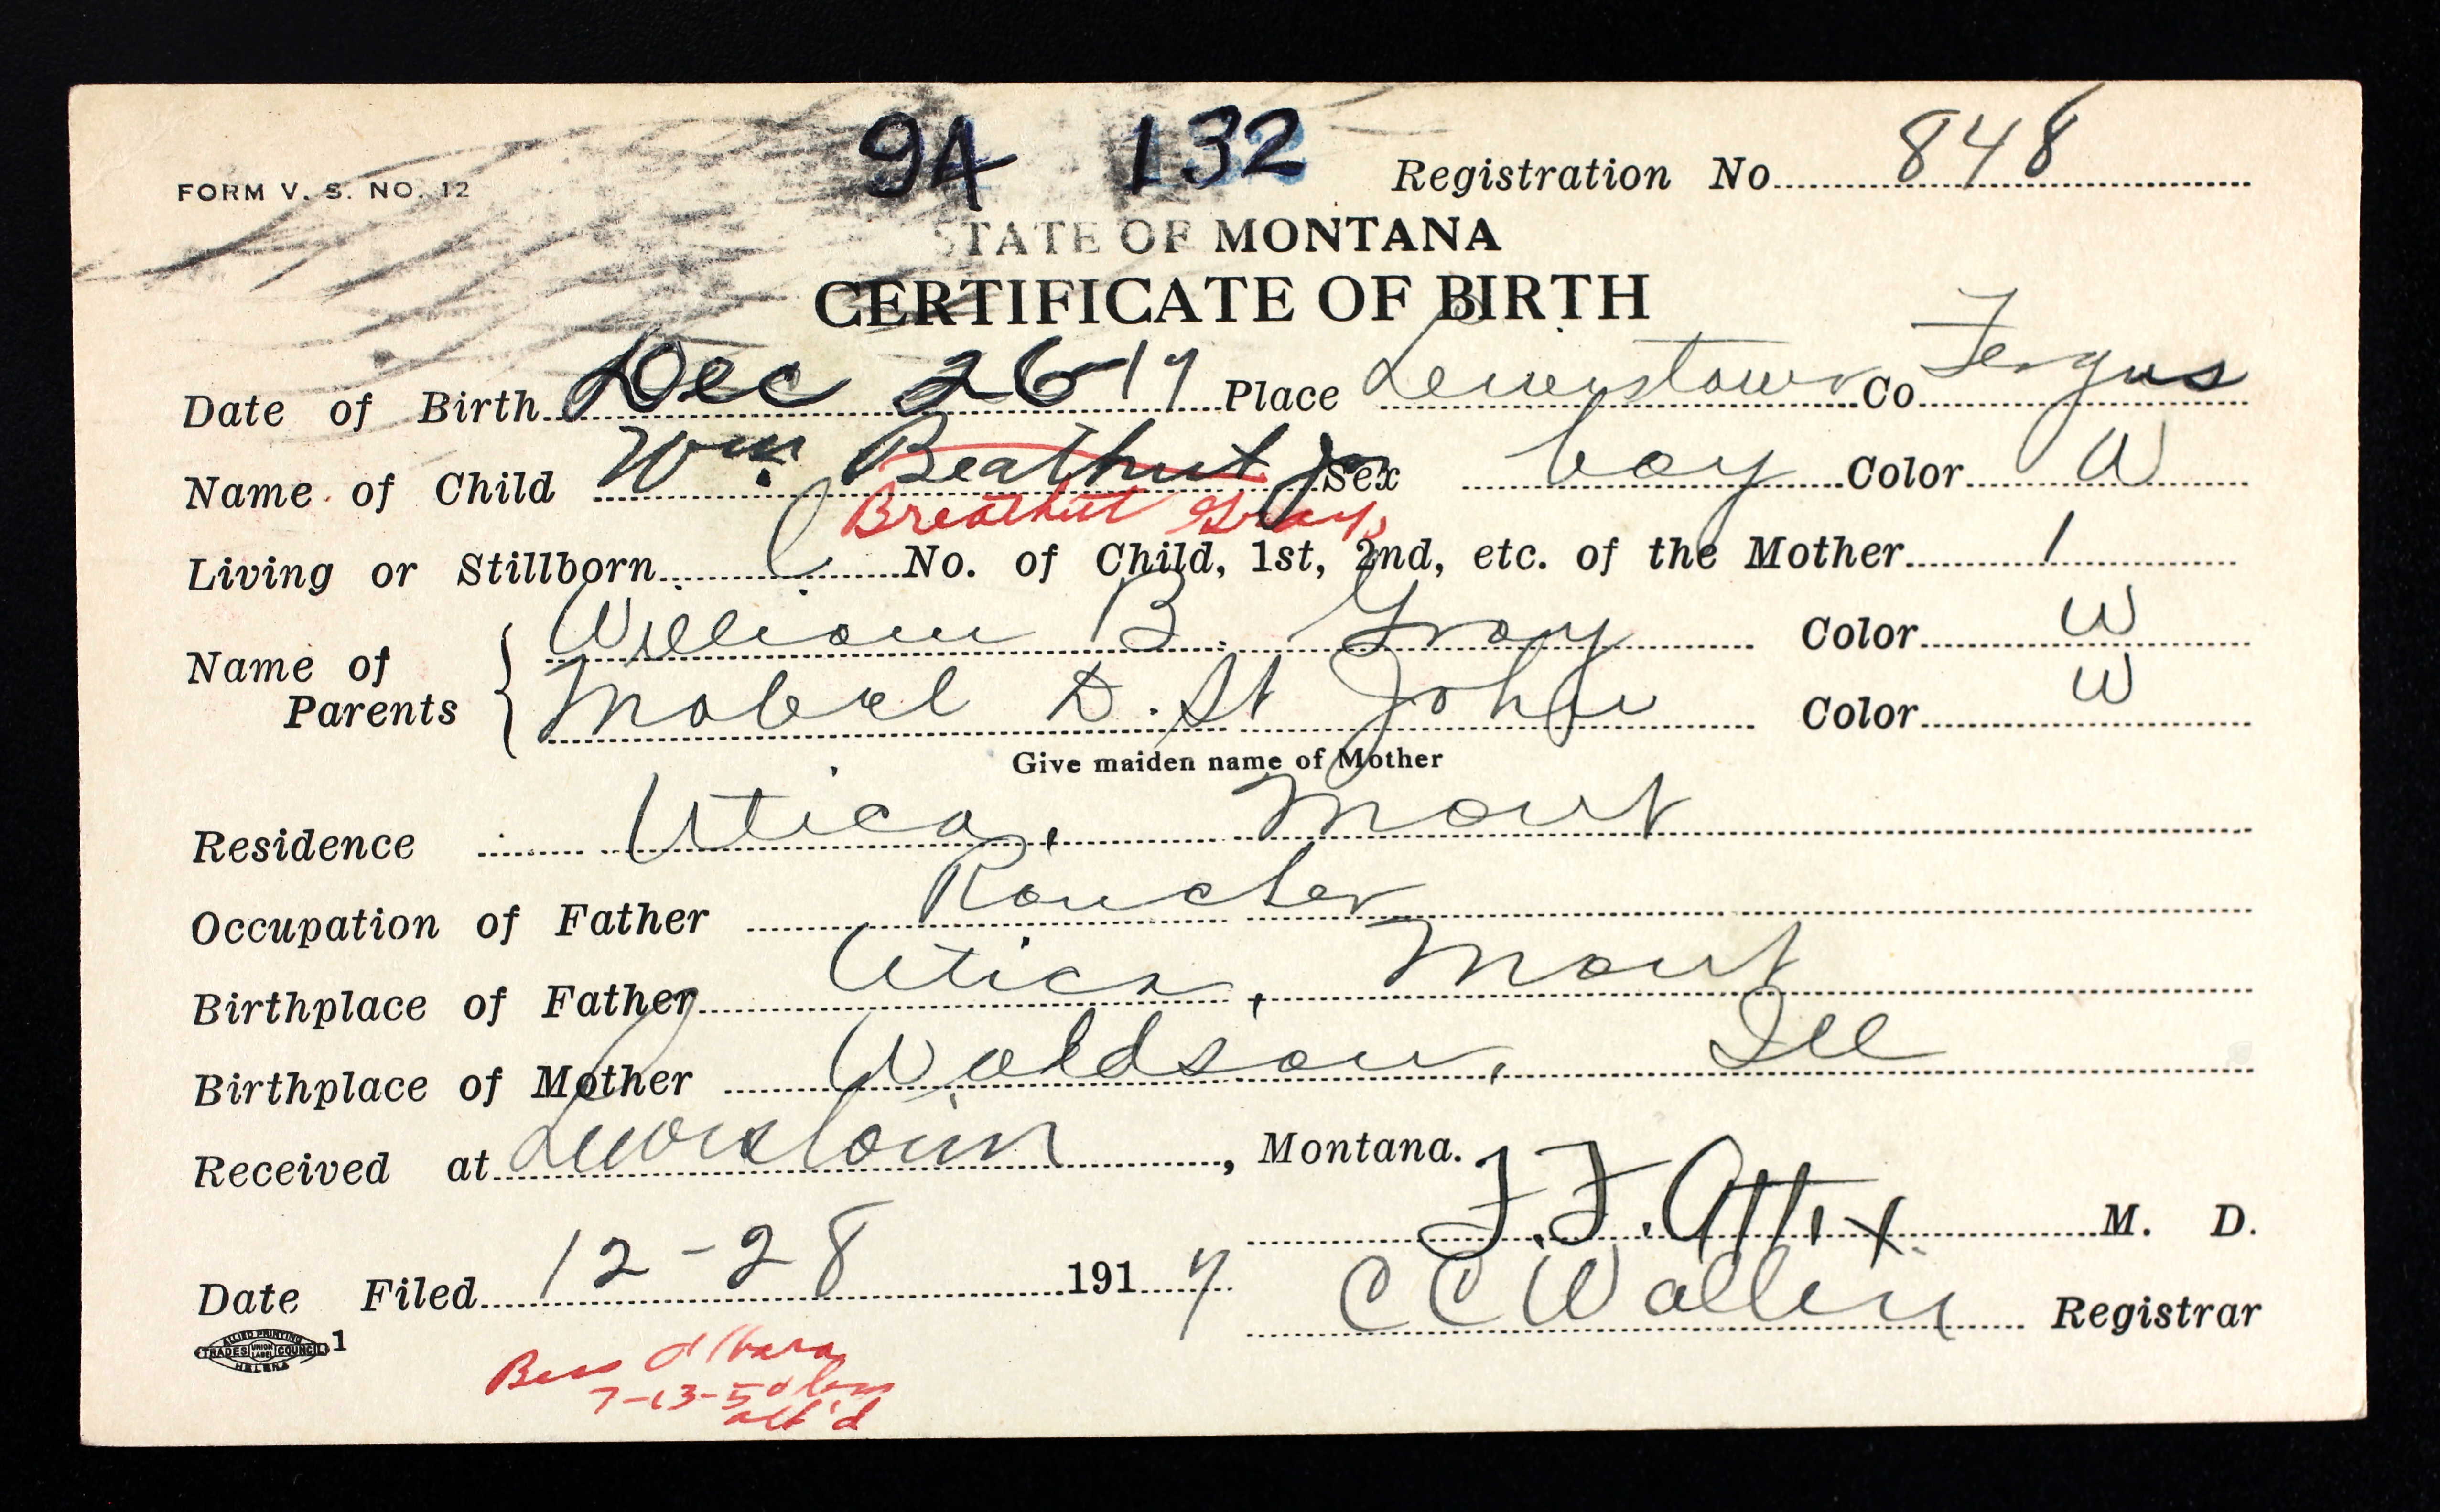 94 132
FORM V. S. NO. 12 Registration No. 848
STATE OF MONTANA
CERTIFICATE OF BIRTH
Date of Birth Dec 26-17 Place Lewistown Co. Fergus
Name of Child Wm. Beathut Jr Sex boy Color W
Breathitt Gray,
Living or Stillborn L No. of Child, 1st, 2nd, etc. of the Mother 1
William B. Gray Color W
Name of
Parents Mabel D. St John Color W
Give maiden name of Mother
Residence Utica, Mont
Occupation of Father Rancher
Birthplace of Father Utica, Mont
Birthplace of Mother Woldson, Ill
Received at Lewistown, Montana.
F. F. Attix M. D.
Date Filed 12-28 1917 C C Wallin Registrar
ALLIED PRINTING
TRADES UNION LABEL COUNCIL 1
HELENA
7-13-5